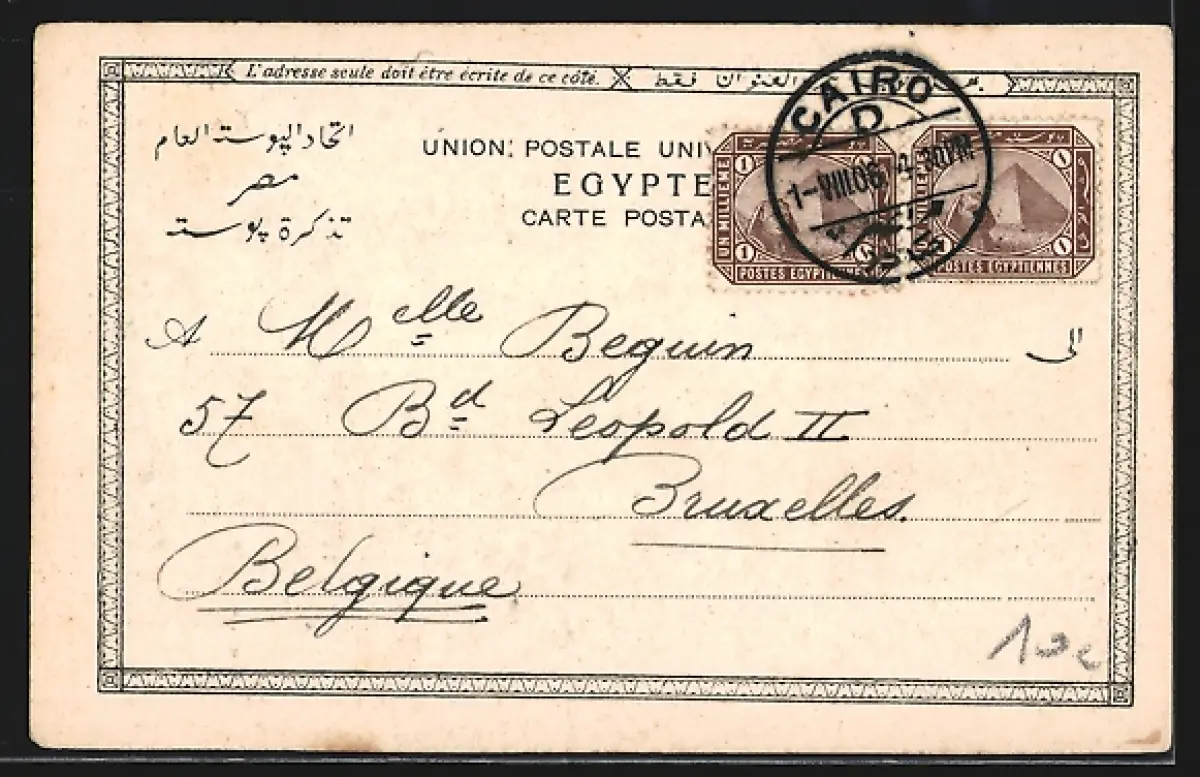 L'adresse seule doit être écrite de ce côté.
العنوان فقط
اتحاد البوسته العام
مصر
تذكرة بوسته
UNION POSTALE UNIV
EGYPTE
CARTE POSTA
CAIRO
D
1-VIII 06
30 PM
1 1
UN MILLIEME
1
POSTES EGYPTIENNES
١
١
POSTES EGYPTIENNES
A Melle Beguin
الى
57 Bd Leopold II
Bruxelles.
Belgique